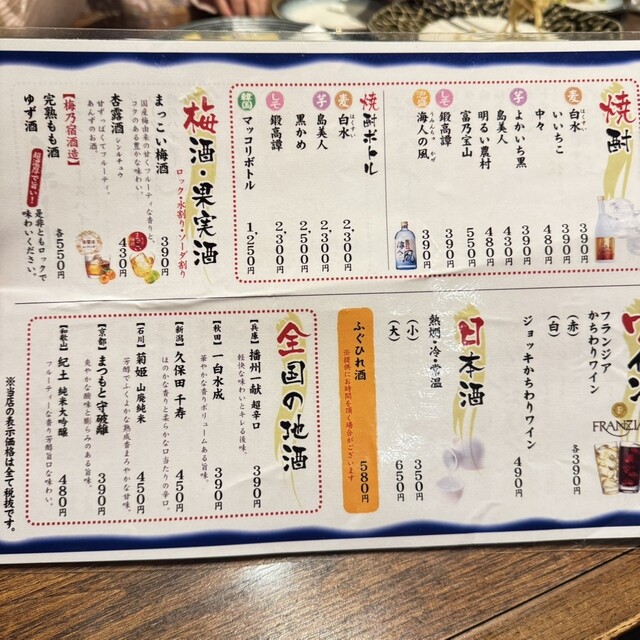 焼酎
麦 白水 はくすい 390円
いいちこ 390円
中々 530円
芋 よかいち黒 390円
明るい農村 480円
島美人 430円
富乃宝山 550円
しそ 鍛高譚 390円
海人の風 うみんちゅ かぜ 390円
焼酎ボトル
麦 白水 はくすい 2,300円
芋 島美人 2,500円
黒かめ 2,300円
しそ 鍛高譚 2,500円
韓国 マッコリボトル 1,250円
梅酒・果実酒
ロック・水割り・ソーダ割り
まっこい梅酒 390円
国産梅由来の甘くフルーティな香りと、
コクのある豊かな味わい。
杏露酒 シンルチュウ 430円
甘ずっぱくてフルーティ。
あんずのお酒。
【梅乃宿酒造】
完熟もも酒
ゆず酒
各550円
超濃厚で旨い!
是非ともロックで
味わいください。
ワイン
フランジア
かちわりワイン
(赤)
(白)
各390円
ジョッキかちわりワイン 490円
FRANZIA
日本酒
熱燗・冷・常温
(小) 350円
(大) 650円
ふぐひれ酒 580円
※提供にお時間を頂く場合がございます
全国の地酒
【兵庫】 播州一献 超辛口 390円
軽快な味わいとキレる後味。
【秋田】 一白水成 390円
華やかな香りボリュームある旨味。
【新潟】 久保田 千寿 450円
ほのかな香りと柔らかな口当たりの辛口。
【石川】 菊姫 山廃純米 450円
芳醇でふくよかな熟成香まろやかな甘味。
【京都】 まつもと 守破離 390円
爽やかな酸味と膨らみのある旨味。
【和歌山】 紀土 純米大吟醸 480円
フルーティーな香り芳醇旨口な味わい。
※当店の表示価格は全て税抜です。